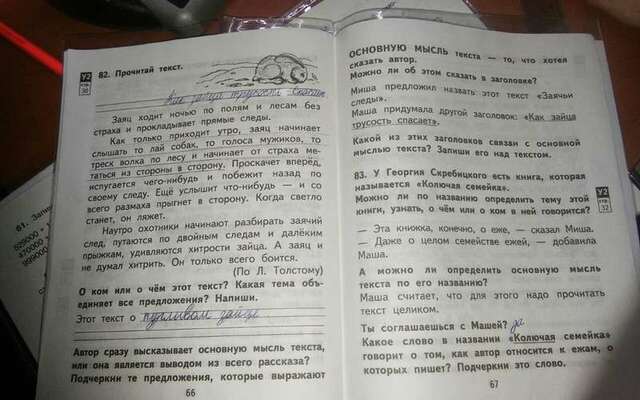 82. Прочитай текст.
У2
стр.
30
Как зайца трусость спасает
Заяц ходит ночью по полям и лесам без
страха и прокладывает прямые следы.
Как только приходит утро, заяц начинает
слышать то лай собак, то голоса мужиков, то
треск волка по лесу и начинает от страха ме-
таться из стороны в сторону. Проскачет вперёд,
испугается чего-нибудь и побежит назад по
своему следу. Ещё услышит что-нибудь — и со
всего размаха прыгнет в сторону. Когда светло
станет, он ляжет.
Наутро охотники начинают разбирать заячий
след, путаются по двойным следам и далёким
прыжкам, удивляются хитрости зайца. А заяц и
не думал хитрить. Он только всего боится.
(По Л. Толстому)
О ком или о чём этот текст? Какая тема объ-
единяет все предложения? Напиши.
Этот текст о пугливом зайце
Автор сразу высказывает основную мысль текста,
или она является выводом из всего рассказа?
Подчеркни те предложения, которые выражают
66
ОСНОВНУЮ МЫСЛЬ текста — то, что хотел
сказать автор.
Можно ли об этом сказать в заголовке?
Миша предложил назвать этот текст «Заячьи
следы».
Маша придумала другой заголовок: «Как зайца
трусость спасает».
Какой из этих заголовков связан с основной
мыслью текста? Запиши его над текстом.
83. У Георгия Скребицкого есть книга, которая
называется «Колючая семейка».
Можно ли по названию определить тему этой
книги, узнать, о чём или о ком в ней говорится?
У2
стр.
32
— Эта книжка, конечно, о еже, — сказал Миша.
— Даже о целом семействе ежей, — добавила
Маша.
А можно ли определить основную мысль
текста по его названию?
Маша считает, что для этого надо прочитать
текст целиком.
Ты соглашаешься с Машей? да
Какое слово в названии «Колючая семейка»
говорит о том, как автор относится к ежам, о
которых пишет? Подчеркни это слово.
67
61. Запи